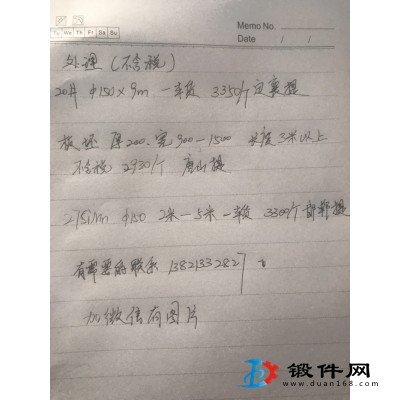 Memo No.
Tu We Th Fr Sa Su
Date / /
处理（不含税）
20# φ150×9m 一车载 3350/个 提
板坯 厚200. 宽900-1500 长度3米以上
不含税 2930/个 唐山提
27SiMn φ150 2米-5米 一车载 3300/个 邯郸提
有需要的联系 13821332827
加微信有图片
锻件网
www.duan168.com